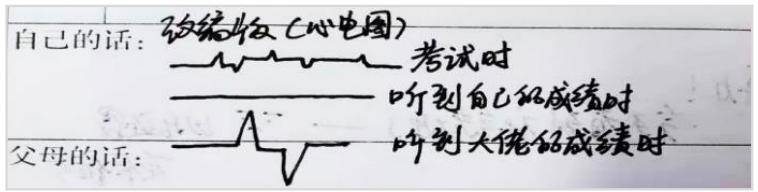 自己的话：改编版（心电图）
考试时
听到自己的成绩时
父母的话：听到大佬的成绩时